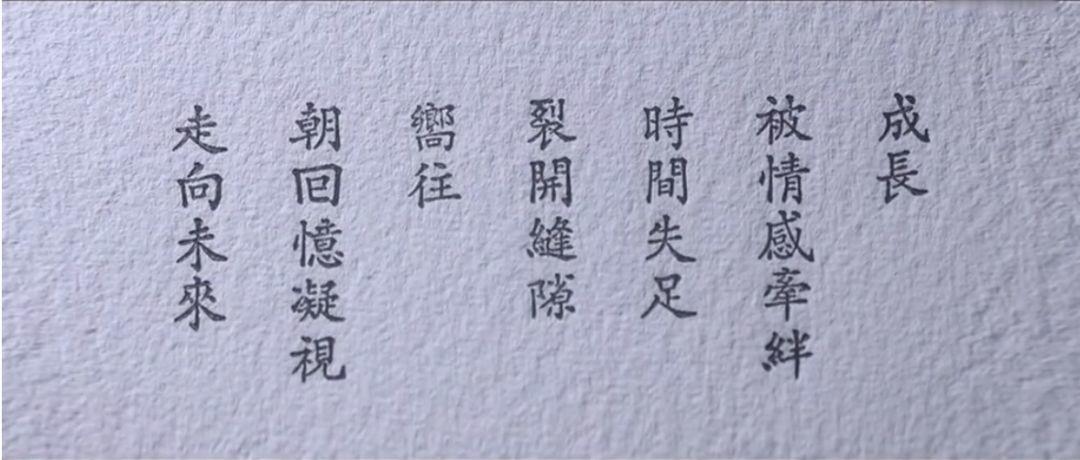 成長
被情感牽絆
時間失足
裂開縫隙
嚮往
朝回憶凝視
走向未來